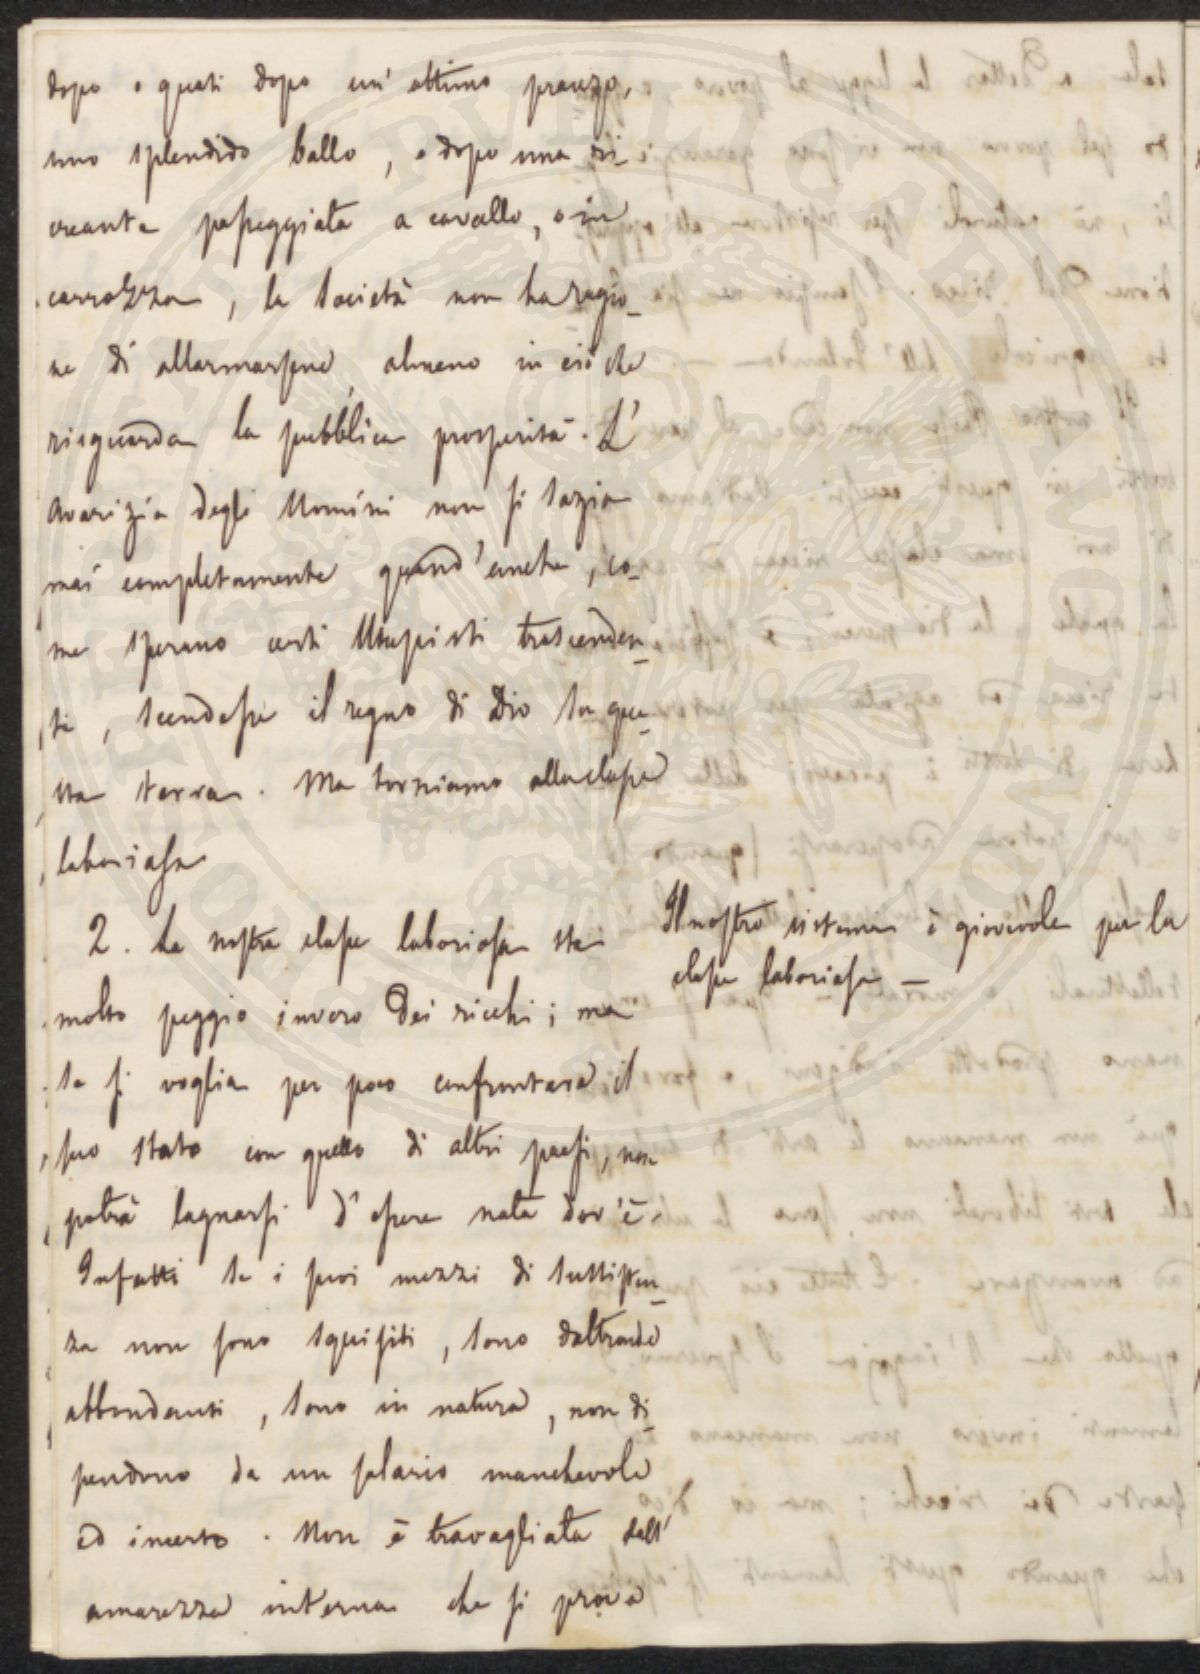 dopo o quasi dopo un' ottimo pranzo,
uno splendido ballo, o dopo una ri-
creante passeggiata a cavallo, o in
carrozza, la società non ha ragio-
ne di allarmarsene, almeno in ciò che
risguarda la pubblica prosperità. L'
avarizia degli Uomini non si sazia
mai completamente quand' anche, co-
me sperano certi Utopisti trascenden-
ti, scendesse il regno di Dio su que-
sta terra. Ma torniamo alla classe
laboriosa
2. La nostra classe laboriosa sta
molto peggio invero dei ricchi; ma
se si voglia per poco confrontare il
suo stato con quello di altri paesi, non
potrà lagnarsi d' essere nata dov'è
Infatti se i suoi mezzi di sussisten-
za non sono squisiti, sono d'altronde
abbondanti, sono in natura, non di-
pendono da un salario manchevole
ed incerto. Non è travagliata dall'
amarezza interna che si prova
Il nostro sistema è giovevole per la
classe laboriosa —